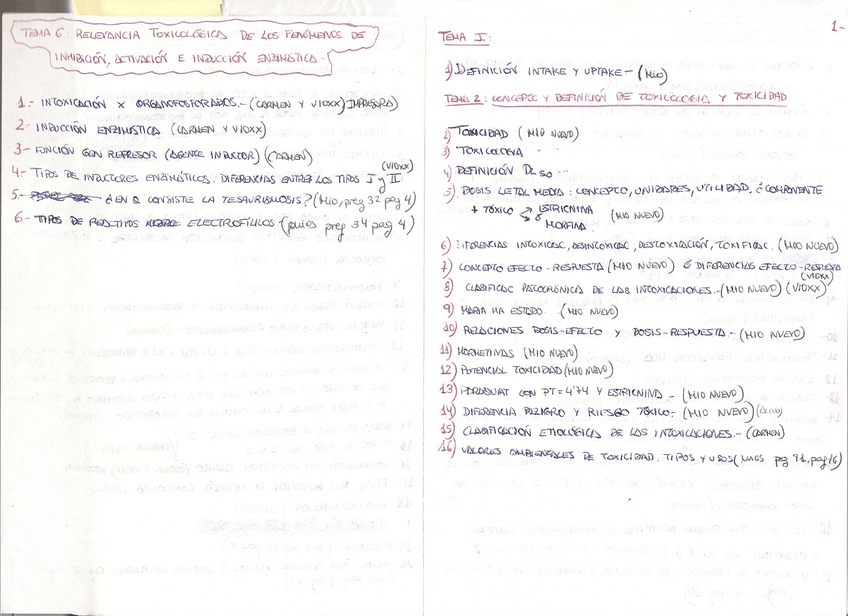 TEMA 6: RELEVANCIA TOXICOLÓGICA DE LOS FENÓMENOS DE
INHIBICIÓN, ACTIVACIÓN E INDUCCIÓN ENZIMÁTICA.-
1.- INTOXICACIÓN X ORGANOFOSFORADOS.- (CARMEN Y VIOXX) IMPRESORA)
2- INDUCCIÓN ENZIMÁTICA (CARMEN Y VIOXX)
3- FUNCIÓN GEN REPRESOR (AGENTE INDUCTOR) (CARMEN)
4- TIPOS DE INDUCTORES ENZIMÁTICOS: DIFERENCIAS ENTRE LOS TIPOS I y II (VIOXX)
5- ¿EN Q CONSISTE LA TESAURISMOSIS? (Mio, preg 32 pag 4)
6- TIPOS DE REACTIVOS ELECTROFÍLICOS (preg 34 pag 4)
1-
TEMA I:
1) DEFINICIÓN INTAKE Y UPTAKE- (Mio)
TEMA 2: CONCEPTO Y DEFINICIÓN DE TOXICOLOGIA Y TOXICIDAD
2) TOXICIDAD (MIO NUEVO)
3) TOXICOLOGIA " "
4) DEFINICIÓN DE SO "
5) DOSIS LETAL MEDIA: CONCEPTO, UNIDADES, UTILIDAD, ¿COMPONENTE
+ TÓXICO → ESTRICNINA (MIO NUEVO)
MORFINA
6) DIFERENCIAS INTOXICAC, DESINTOXICAC, DESTOXICACIÓN, TOXIFICAC. (MIO NUEVO)
7) CONCEPTO EFECTO-RESPUESTA (MIO NUEVO) ó DIFERENCIAS EFECTO-RESPUESTA (VIOXX)
8) CLASIFICAC PATOCRÓNICA DE LAS INTOXICACIONES.- (MIO NUEVO) (VIOXX)
9) MARIA HA ESTADO... (MIO NUEVO)
10) RELACIONES DOSIS-EFECTO Y DOSIS-RESPUESTA.- (MIO NUEVO)
11) (MIO NUEVO)
12) POTENCIAL TOXICIDAD (MIO NUEVO)
13) PARAQUAT CON PT=4'74 Y ESTRICNINA- (MIO NUEVO)
14) DIFERENCIA PELIGRO Y RIESGO TÓXICO.- (MIO NUEVO)
15) CLASIFICACIÓN ETIOLÓGICA DE LAS INTOXICACIONES.- (CARMEN)
16) VALORES AMBIENTALES DE TOXICIDAD. TIPOS Y USOS